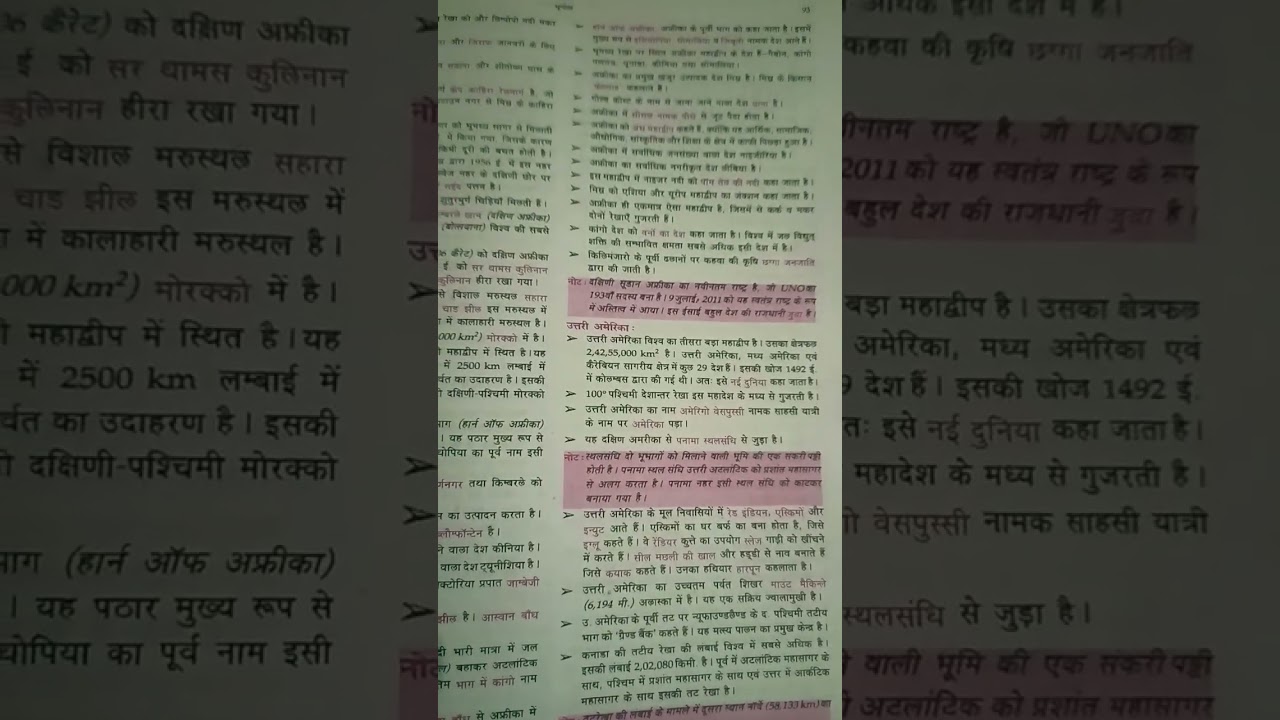 भूगोल
93
रेखा को और लिम्पोपो नदी मकर
और जिराफ जानवरों के लिए
को भूमध्य सागर से मिलाती
में किया गया, जिसके कारण
दूरी की बचत होती है।
द्वारा 1956 ई. में इस नहर
स्वेज नहर के दक्षिणी छोर पर
सईद पत्तन है।
शुतुरमुर्ग चिड़ियाँ मिलती हैं।
(दक्षिण अफ्रीका)
(बोत्सवाना) विश्व की सबसे
कैरेट) को दक्षिण अफ्रीका
ई. को सर थामस कुलिनान
कुलिनान हीरा रखा गया।
से विशाल मरुस्थल सहारा
चाड झील इस मरुस्थल में
में कालाहारी मरुस्थल है।
000 km²) मोरक्को में है।
महाद्वीप में स्थित है। यह
में 2500 km लम्बाई में
र्वत का उदाहरण है। इसकी
दक्षिणी-पश्चिमी मोरक्को
भाग (हार्न ऑफ अफ्रीका)
। यह पठार मुख्य रूप से
थोपिया का पूर्व नाम इसी
तथा किम्बरले को
का उत्पादन करता है।
ब्लौमफॉन्टेन है।
वाला देश कीनिया है।
वाला देश ट्यूनीशिया है।
विक्टोरिया प्रपात जाम्बेजी
झील है। आस्वान बाँध
भारी मात्रा में जल
बहाकर अटलांटिक
भाग में कांगो नाम
से अफ्रीका में
➢ हार्न ऑफ अफ्रीका, अफ्रीका के पूर्वी भाग को कहा जाता है। इसमें
मुख्य रूप से इथियोपिया, सोमालिया व जिबूती नामक देश आते हैं।
➢ भूमध्य रेखा पर स्थित अफ्रीका महाद्वीप के देश हैं—गैबोन, कांगो
गणराज्य, युगांडा, कीनिया तथा सोमालिया।
➢ अफ्रीका का प्रमुख खजूर उत्पादक देश मिस्र है। मिस्र के किसान
फेल्लाह कहलाते हैं।
➢ गोल्ड कोस्ट के नाम से जाना जाने वाला देश घाना है।
➢ अफ्रीका में सीसल नामक पौधे से जूट पैदा होता है।
➢ अफ्रीका को अंध महाद्वीप कहते हैं, क्योंकि यह आर्थिक, सामाजिक,
औद्योगिक, सांस्कृतिक और शिक्षा के क्षेत्र में काफी पिछड़ा हुआ है।
➢ अफ्रीका में सर्वाधिक जनसंख्या वाला देश नाइजीरिया है।
➢ अफ्रीका का सर्वाधिक नगरीकृत देश लीबिया है।
➢ इस महाद्वीप में नाइजर नदी को पाम तेल की नदी कहा जाता है।
➢ मिस्र को एशिया और यूरोप महाद्वीप का जंक्शन कहा जाता है।
➢ अफ्रीका ही एकमात्र ऐसा महाद्वीप है, जिसमें से कर्क व मकर
दोनों रेखाएँ गुजरती हैं।
➢ कांगो देश को वनों का देश कहा जाता है। विश्व में जल विद्युत्
शक्ति की सम्भावित क्षमता सबसे अधिक इसी देश में है।
➢ किलिमंजारो के पूर्वी ढलानों पर कहवा की कृषि छग्गा जनजाति
द्वारा की जाती है।
नोट : दक्षिणी सूडान अफ्रीका का नवीनतम राष्ट्र है, जो UNO का
193वाँ सदस्य बना है। 9 जुलाई, 2011 को यह स्वतंत्र राष्ट्र के रूप
में अस्तित्व में आया। इस ईसाई बहुल देश की राजधानी जुबा है।
उत्तरी अमेरिका :
➢ उत्तरी अमेरिका विश्व का तीसरा बड़ा महाद्वीप है। उसका क्षेत्रफल
2,42,55,000 km² है। उत्तरी अमेरिका, मध्य अमेरिका एवं
कैरेबियन सागरीय क्षेत्र में कुल 29 देश हैं। इसकी खोज 1492 ई.
में कोलम्बस द्वारा की गई थी। अतः इसे नई दुनिया कहा जाता है।
➢ 100° पश्चिमी देशान्तर रेखा इस महादेश के मध्य से गुजरती है।
➢ उत्तरी अमेरिका का नाम अमेरिगो वेसपुस्सी नामक साहसी यात्री
के नाम पर अमेरिका पड़ा।
➢ यह दक्षिण अमरीका से पनामा स्थलसंधि से जुड़ा है।
नोट : स्थलसंधि दो भूभागों को मिलाने वाली भूमि की एक सकरी पट्टी
होती है। पनामा स्थल संधि उत्तरी अटलांटिक को प्रशांत महासागर
से अलग करता है। पनामा नहर इसी स्थल संधि को काटकर
बनाया गया है।
➢ उत्तरी अमेरिका के मूल निवासियों में रेड इंडियन, एस्किमों और
इन्युट आते हैं। एस्किमों का घर बर्फ का बना होता है, जिसे
इग्लू कहते हैं। वे रेंडियर कुत्ते का उपयोग स्लेज गाड़ी को खींचने
में करते हैं। सील मछली की खाल और हड्डी से नाव बनाते हैं
जिसे कयाक कहते हैं। उनका हथियार हारपून कहलाता है।
➢ उत्तरी अमेरिका का उच्चतम पर्वत शिखर माउंट मैकिन्ले
(6,194 मी.) अलास्का में है। यह एक सक्रिय ज्वालामुखी है।
➢ उ. अमेरिका के पूर्वी तट पर न्यूफाउण्डलैण्ड के द. पश्चिमी तटीय
भाग को 'ग्रैण्ड बैंक' कहते हैं। यह मत्स्य पालन का प्रमुख केन्द्र है।
➢ कनाडा की तटीय रेखा की लंबाई विश्व में सबसे अधिक है।
इसकी लंबाई 2,02,080 किमी. है। पूर्व में अटलांटिक महासागर के
साथ, पश्चिम में प्रशांत महासागर के साथ एवं उत्तर में आर्कटिक
महासागर के साथ इसकी तट रेखा है।
तटरेखा की लंबाई के मामले में दूसरा स्थान नॉर्वे (58,133 km) का